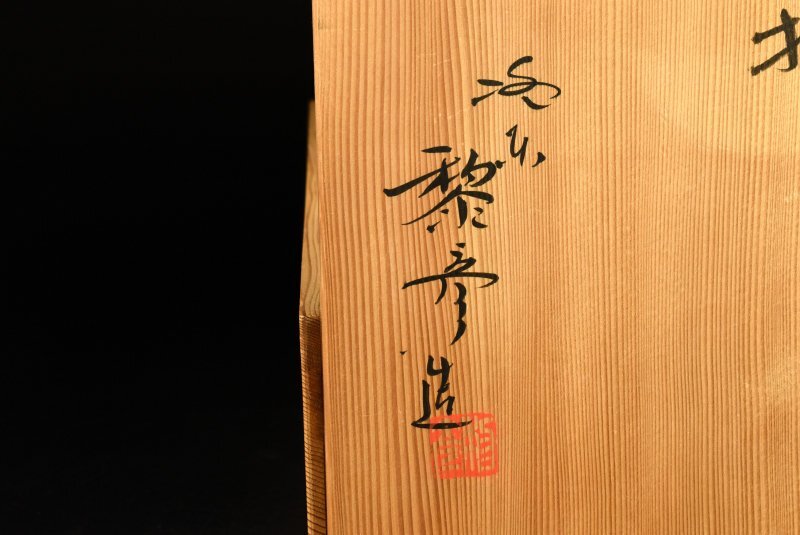 洛東
黎彦造